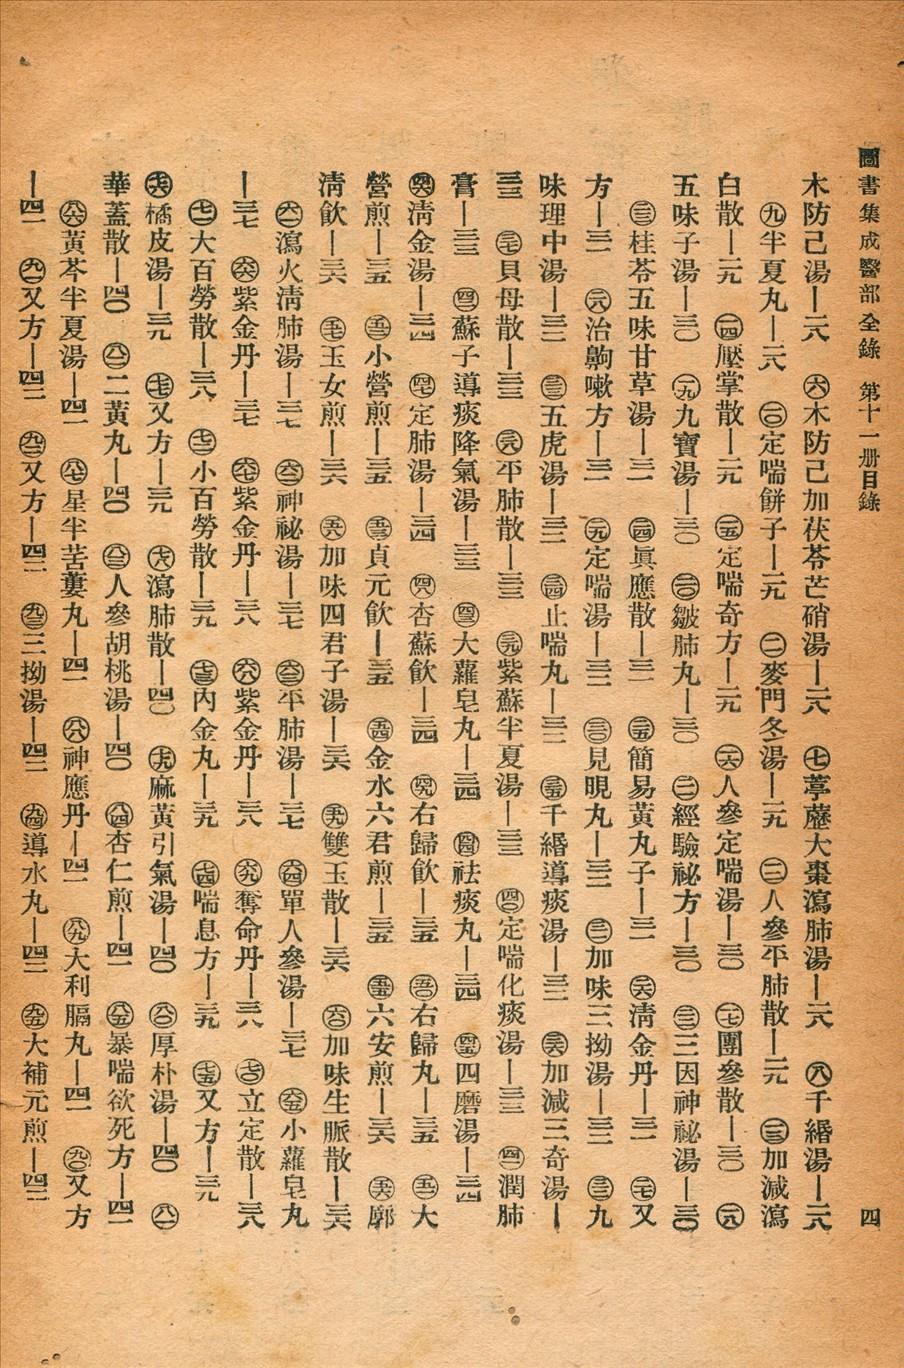 圖書集成醫部全錄　第十一册目錄　四
木防己湯—二八　(六)木防己加茯苓芒硝湯—二八　(七)葶藶大棗瀉肺湯—二八　(八)千緡湯—二八
(九)半夏丸—二八　(一〇)定喘餅子—二九　(一一)麥門冬湯—二九　(一二)人參平肺散—二九　(一三)加減瀉
白散—二九　(一四)壓掌散—二九　(一五)定喘奇方—二九　(一六)人參定喘湯—三〇　(一七)團參散—三〇　(一八)
五味子湯—三〇　(一九)九寶湯—三〇　(二〇)皺肺丸—三〇　(二一)經驗祕方—三〇　(二二)三因神祕湯—三〇
(二三)桂苓五味甘草湯—三一　(二四)眞應散—三一　(二五)簡易黃丸子—三一　(二六)淸金丹—三一　(二七)又
方—三一　(二八)治齁嗽方—三一　(二九)定喘湯—三二　(三〇)見晛丸—三二　(三一)加味三拗湯—三二　(三二)九
味理中湯—三二　(三三)五虎湯—三二　(三四)止喘丸—三二　(三五)千緡導痰湯—三二　(三六)加減三奇湯—
三三　(三七)貝母散—三三　(三八)平肺散—三三　(三九)紫蘇半夏湯—三三　(四〇)定喘化痰湯—三三　(四一)潤肺
膏—三三　(四二)蘇子導痰降氣湯—三三　(四三)大蘿皂丸—三四　(四四)祛痰丸—三四　(四五)四磨湯—三四
(四六)淸金湯—三四　(四七)定肺湯—三四　(四八)杏蘇飮—三四　(四九)右歸飮—三五　(五〇)右歸丸—三五　(五一)大
營煎—三五　(五二)小營煎—三五　(五三)貞元飮—三五　(五四)金水六君煎—三五　(五五)六安煎—三六　(五六)廓
淸飮—三六　(五七)玉女煎—三六　(五八)加味四君子湯—三六　(五九)雙玉散—三六　(六〇)加味生脈散—三六
(六一)瀉火淸肺湯—三七　(六二)神祕湯—三七　(六三)平肺湯—三七　(六四)單人參湯—三七　(六五)小蘿皂丸
—三七　(六六)紫金丹—三七　(六七)紫金丹—三八　(六八)紫金丹—三八　(六九)奪命丹—三八　(七〇)立定散—三八
(七一)大百勞散—三八　(七二)小百勞散—三九　(七三)內金丸—三九　(七四)喘息方—三九　(七五)又方—三九
(七六)橘皮湯—三九　(七七)又方—三九　(七八)瀉肺散—四〇　(七九)麻黃引氣湯—四〇　(八〇)厚朴湯—四〇　(八一)
華蓋散—四〇　(八二)二黃丸—四〇　(八三)人參胡桃湯—四〇　(八四)杏仁煎—四一　(八五)暴喘欲死方—四一
(八六)黃芩半夏湯—四一　(八七)星半苦蔞丸—四一　(八八)神應丹—四一　(八九)大利膈丸—四一　(九〇)又方
—四一　(九一)又方—四二　(九二)又方—四二　(九三)三拗湯—四二　(九四)導水丸—四二　(九五)大補元煎—四二